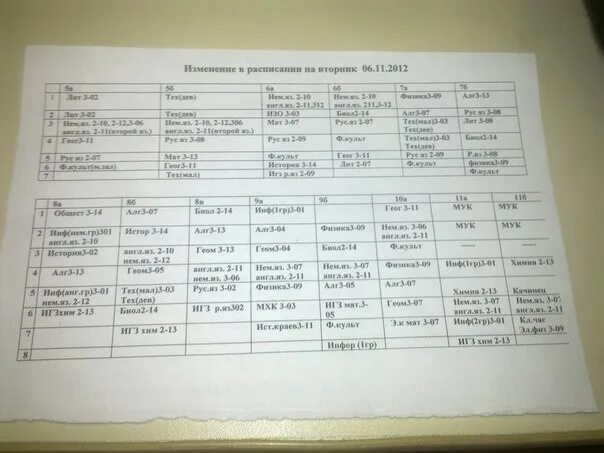 Изменение в расписании на вторник 06.11.2012
5а 5б 6а 6б 7а 7б
1 Лит 3-02 Тех(дев) Нем.яз. 2-10 Нем.яз. 2-10 Физика3-09 Алг3-13
англ.яз. 2-11,312 англ.яз. 211,3-12
2 Лит 3-02 Тех(дев) ИЗО 3-03 Биол2-14 Алг3-07 Рус яз 3-08
3 Нем.яз. 2-10, 2-12,3-06 Нем.яз. 2-10, 2-12,306 Мат 3-07 Рус.яз 2-07 Тех(мал)3-03 Лит 3-08
англ.яз. 2-11(второй яз.) англ.яз. 2-11(второй яз.) Тех(дев)
4 Геог3-11 Рус яз 3-08 Рус яз 2-09 Ф.культ Тех(мал)3-03 Биол2-14
Тех(дев)
5 Рус яз 2-07 Мат 3-13 Ф.культ Геог 3-11 Рус яз 2-09 Р.яз 3-08
6 Ф.культ(м.зал) Геог3-11 История 3-14 Лит 2-07 Ф.культ физика3-09
7 Тех(мал) Игз р.яз 2-09 Ф.культ
8а 8б 8в 9а 9б 10а 11а 11б
1 Общест 3-14 Алг3-07 Биол 2-14 Инф(1гр)3-01 Геог 3-11 МУК МУК
2 Инф(нем.гр)301 Истор 3-14 Алг3-13 Алг3-04 Физика3-09 Нем.яз. 3-06 МУК МУК
англ.яз. 2-10 англ.яз. 2-11
3 История3-02 англ.яз. 2-10 Геом 3-13 Геом3-04 Биол2-14 Ф.культ ----- -----
нем.яз. 2-12
4 Алг3-13 Геом3-05 англ.яз. 2-11 Нем.яз. 3-07 Нем.яз. 3-07 Физика3-09 Инф(1гр)3-01 Химия 2-13
нем.яз. 3-06 англ.яз. 2-11 англ.яз. 2-11
5 Инф(анг.гр)3-01 Тех(мал)3-03 Рус.яз 3-02 Физика3-09 Алг3-05 Алг3-07 Химия 2-13
нем.яз. 2-12 Тех(дев)
6 ИГЗхим 2-13 Биол2-14 ИГЗ р.яз302 МХК 3-03 ИГЗ мат.3- Геом3-07 Нем.яз. 3-07 Нем.яз. 3-07
05 англ.яз. 2-11 англ.яз. 2-11
7 ИГЗ хим 2-13 Ист.краев3-11 Ф.культ Э.к мат 3-07 Инф(2гр)3-01 Кл.час
Эл.физ 3-09
8 Инфор (1гр) ИГЗ хим 2-13